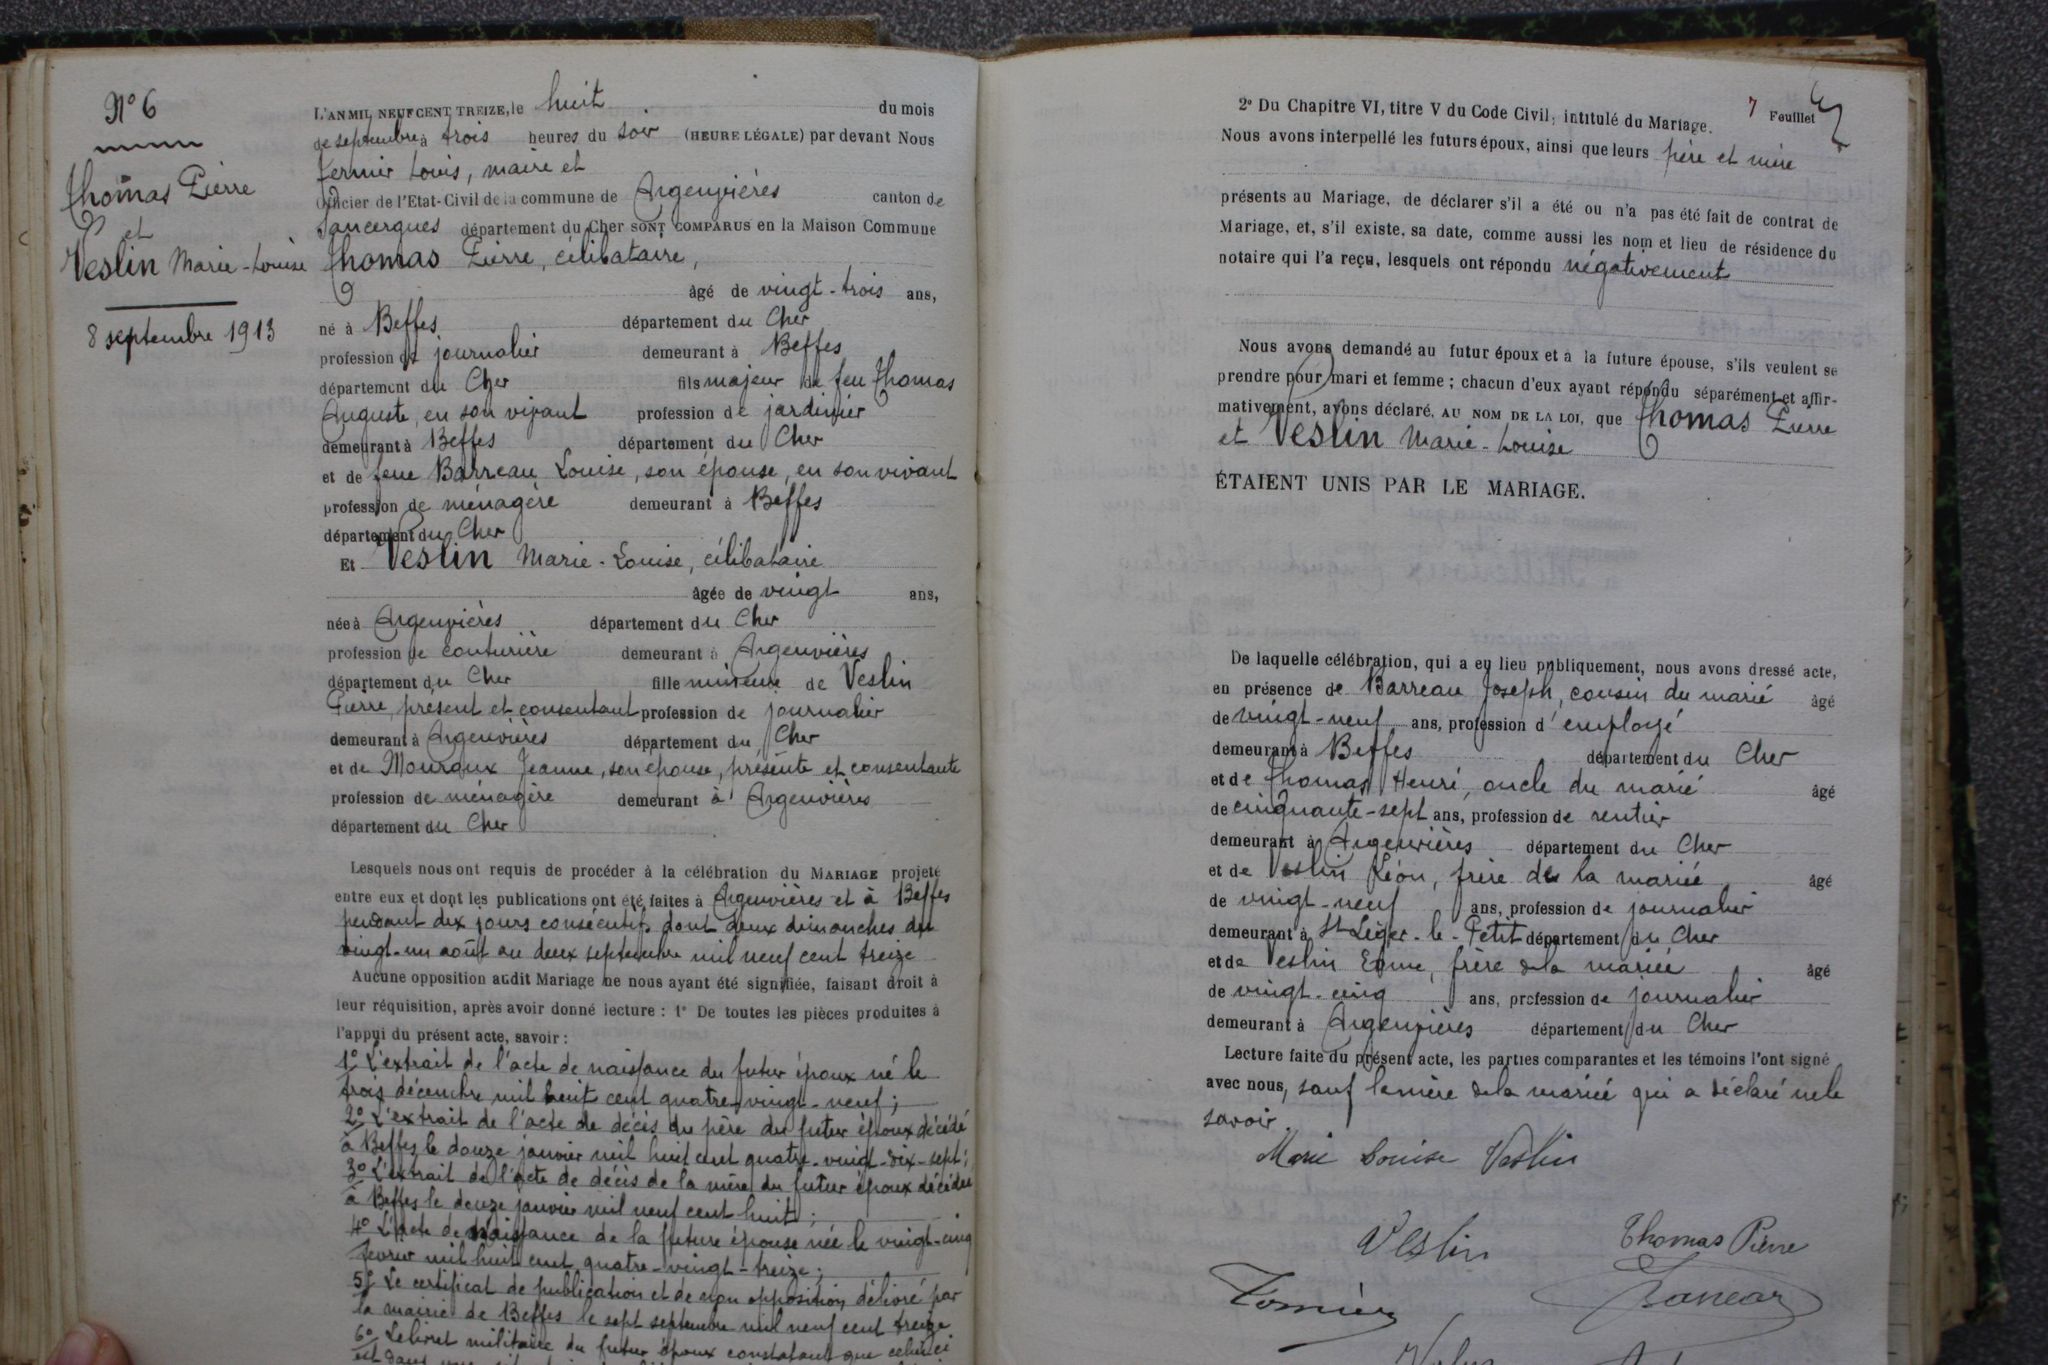 N° 6
Thomas Pierre
et
Veslin Marie-Louise
8 septembre 1913
L'AN MIL NEUF CENT TREIZE, le huit du mois
de septembre à trois heures du soir (HEURE LÉGALE) par devant Nous
Louis, maire et
Officier de l'Etat-Civil de la commune de Argenvières canton de
Sancergues département du Cher SONT COMPARUS en la Maison Commune
Thomas Pierre, célibataire,
âgé de vingt-trois ans,
né à Beffes département du Cher
profession de journalier demeurant à Beffes
département du Cher fils majeur de feu Thomas
Auguste, en son vivant profession de jardinier
demeurant à Beffes département du Cher
et de feue Barreau Louise, son épouse, en son vivant
profession de ménagère demeurant à Beffes
département du Cher
Et Veslin Marie-Louise, célibataire
âgée de vingt ans,
née à Argenvières département du Cher
profession de couturière demeurant à Argenvières
département du Cher fille mineure de Veslin
Pierre, présent et consentant profession de journalier
demeurant à Argenvières département du Cher
et de Mouroux Jeanne, son épouse, présente et consentante
profession de ménagère demeurant à Argenvières
département du Cher
Lesquels nous ont requis de procéder à la célébration du MARIAGE projeté
entre eux et dont les publications ont été faites à Argenvières et à Beffes
pendant dix jours consécutifs dont deux dimanches du
vingt-un août au deux septembre mil neuf cent treize
Aucune opposition audit Mariage ne nous ayant été signifiée, faisant droit à
leur réquisition, après avoir donné lecture : 1° De toutes les pièces produites à
l'appui du présent acte, savoir :
1° L'extrait de l'acte de naissance du futur époux né le
trois décembre mil huit cent quatre-vingt-neuf ;
2° L'extrait de l'acte de décès du père du futur époux décédé
à Beffes le douze janvier mil huit cent quatre-vingt-dix-sept ;
3° L'extrait de l'acte de décès de la mère du futur époux décédée
à Beffes le douze janvier mil neuf cent huit ;
4° L'acte de naissance de la future épouse née le vingt-cinq
février mil huit cent quatre-vingt-treize ;
5° Le certificat de publication et de non opposition délivré par
la mairie de Beffes le sept septembre mil neuf cent treize
6° Le livret militaire du futur époux constatant que celui-ci
7 Feuillet
2° Du Chapitre VI, titre V du Code Civil, intitulé du Mariage.
Nous avons interpellé les futurs époux, ainsi que leurs père et mère
présents au Mariage, de déclarer s'il a été ou n'a pas été fait de contrat de
Mariage, et, s'il existe, sa date, comme aussi les nom et lieu de résidence du
notaire qui l'a reçu, lesquels ont répondu négativement
Nous avons demandé au futur époux et à la future épouse, s'ils veulent se
prendre pour mari et femme ; chacun d'eux ayant répondu séparément et affir-
mativement, avons déclaré, AU NOM DE LA LOI, que Thomas Pierre
et Veslin Marie-Louise
ÉTAIENT UNIS PAR LE MARIAGE.
De laquelle célébration, qui a eu lieu publiquement, nous avons dressé acte,
en présence de Barreau Joseph, cousin du marié âgé
de vingt-neuf ans, profession d'employé
demeurant à Beffes département du Cher
et de Thomas Henri, oncle du marié âgé
de cinquante-sept ans, profession de rentier
demeurant à Argenvières département du Cher
et de Veslin Léon, frère de la mariée âgé
de vingt-neuf ans, profession de journalier
demeurant à St Léger-le-Petit département du Cher
et de Veslin Edme, frère de la mariée âgé
de vingt-cinq ans, profession de journalier
demeurant à Argenvières département du Cher
Lecture faite du présent acte, les parties comparantes et les témoins l'ont signé
avec nous, sauf la mère de la mariée qui a déclaré ne le
savoir.
Marie Louise Veslin
Veslin Thomas Pierre